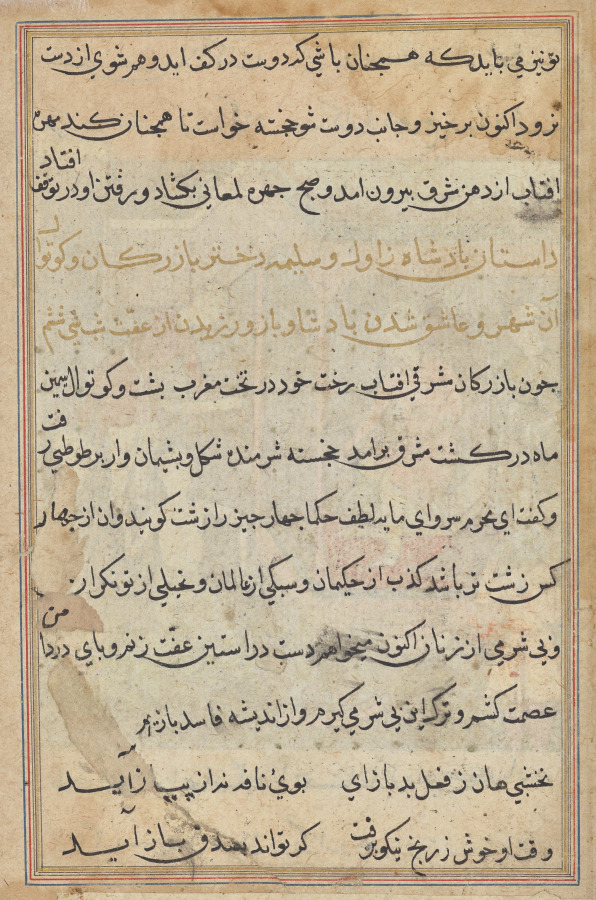 تو نیز می باید که همچنان باشی که دوست در کف اید و هم شوی از دست
نرود اکنون برخیز و جانب دوست شو خجسته خواست تا همچنان کند مهره
افتاب از دهن شرق بیرون امد و صبح چهره لمعانی بکشاد و رفتن او در توقف افتاد
داستان بادشاه زاول و سلیمه دختر بازرکان و کوتوال
آن شهر و عاشق شدن بادشاه و باز ورزیدن از عفت شب شی ششم
چون بازرکان مشرقی افتاب رخت خود در تخت مغرب بست و کوتوال سیمین
ماه در کشت مشرق برامد خجسته شرمنده شکل و پشیمان وار بر طوطی رفت
و کفت ای محرم سر و ای مایه لطف حکما چهار چیز را زشت کویند و ان از چهار
کس زشت تر باشد کذب از حکیمان و سبکی از عالمان و بخیلی از تونکران
و بی شرمی از زنان اکنون میخواهم دست در استین عفت زنم و پای در دامن
عصمت کشم و ترک این بی شرمی کیرم و از اندیشه فاسد باز آیم
نخشبی هان ز فعل بد باز ای بوی نافه نه از پیاز آید
وقت او خوش ز رنج نیکو رفت کر تواند بصدق باز آید